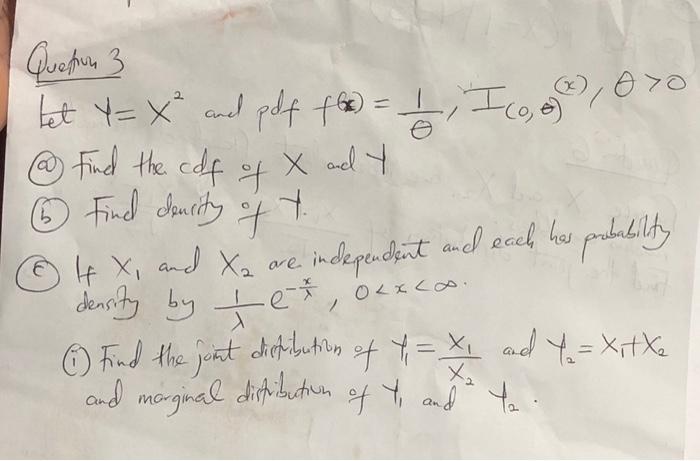 Question 3
Let Y = X² and pdf f(x) = 1/θ, I(0, θ)(x), θ > 0
(a) Find the cdf of X and Y
(b) Find density of Y.
(c) If X₁ and X₂ are independent and each has probability
density by 1/λ e^(-x/λ), 0 < x < ∞.
(i) Find the joint distribution of Y₁ = X₁/X₂ and Y₂ = X₁ + X₂
and marginal distribution of Y₁ and Y₂.